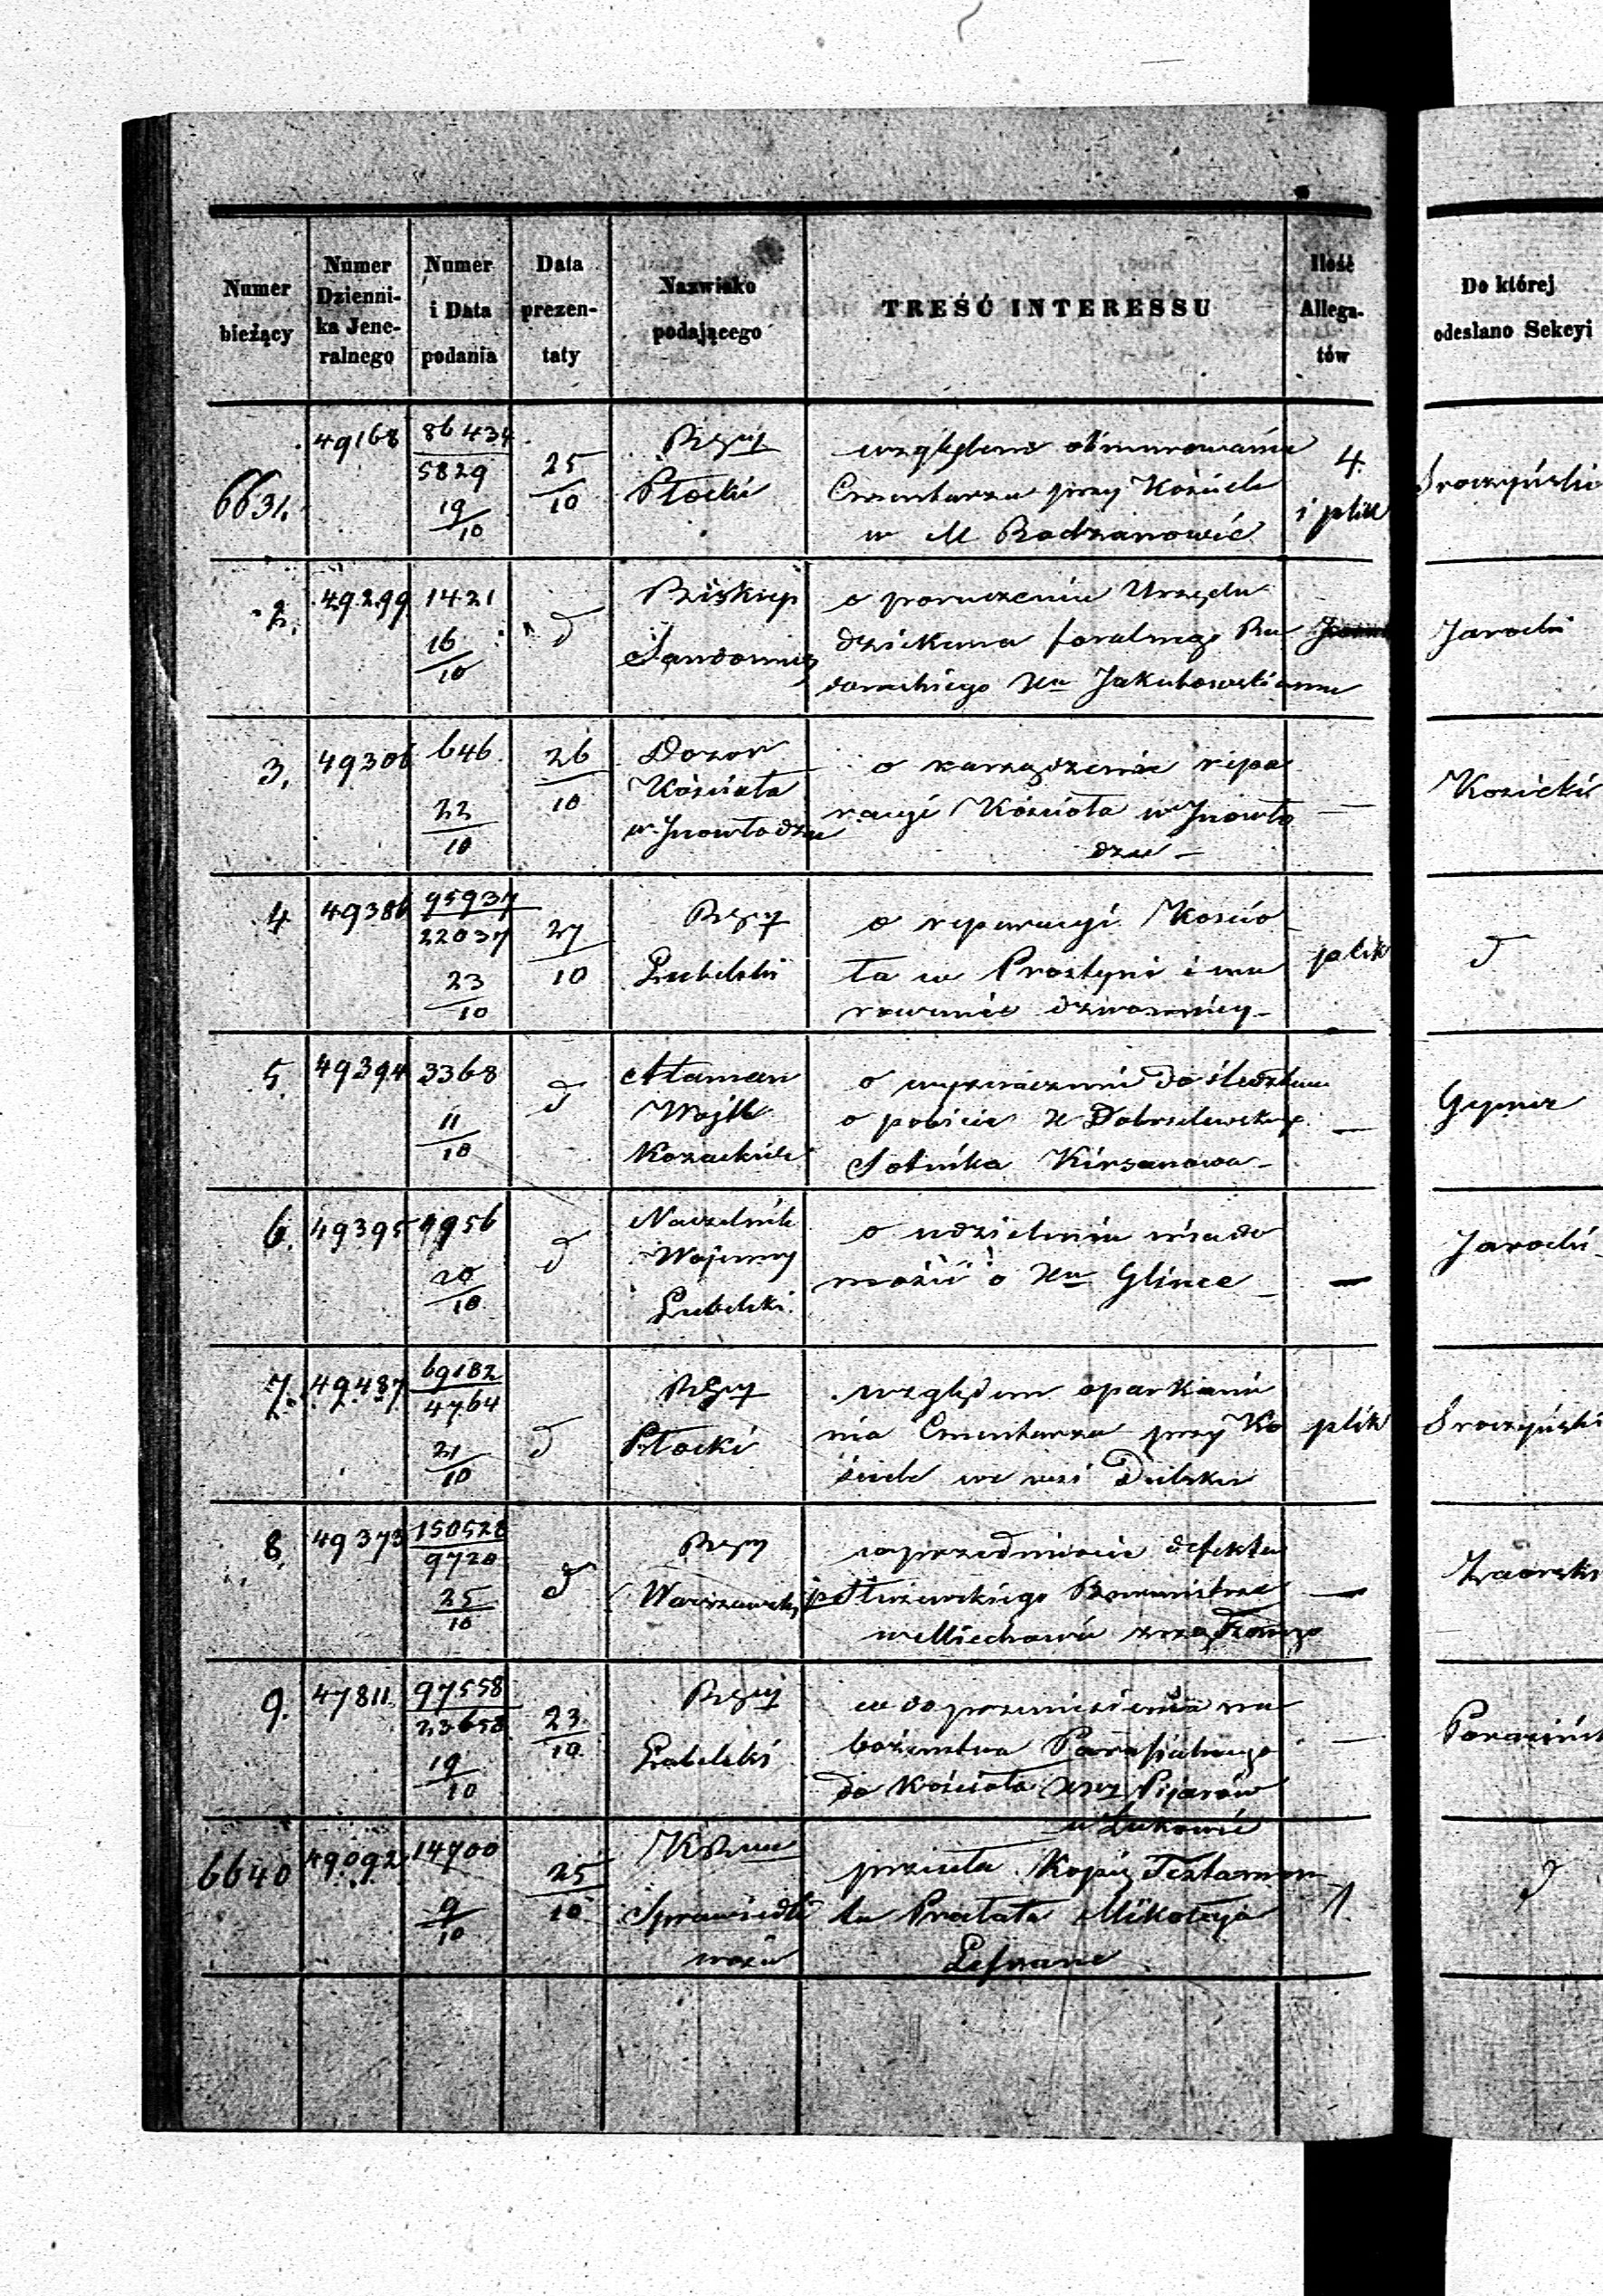 Numer bieżący
Numer Dzienni-ka Jene-ralnego
Numer i Data podania
Data prezen-taty
Nazwisko podającego
TREŚĆ INTERESSU
Ilość Allega-tów
Do której odeslano Sekcyi
6631. 49168 86434 5829 19/10 25/10
Płocki
względem obmurowania
Cmentarza przy Kościele
w M Radzanowie
4.
i plik
2. 49299 1421 16/10 d
Biskup
Sandomirs
o poruczeniu Urzędu
dziekana foralnego
Xu Jakubowskiemu
Jarocki
3. 49306 646 22/10 26/10
Dozór
Kościoła
w Inowłodzu
o zarządzenie repa
racyi Kościoła w Inowło
dzu —
—
Kozicki
4 49386 95937 22037 23/10 27/10
Lubelski
o reparacyi Kościo
ła w Prostyni i mu
rowanie dzwonnicy —
plik
d
5. 49394 3368 11/10 d
Ataman
Wojsk
Kozackich
o wyznaczenie do śledztwa
o pobicie X
Sotnika Kirsanowa —
—
6. 49395 4956 20/10 d
Naczelnik
Wojenny
Lubelski
o udzielenie wiado
mości o Xu Glince —
—
Jarocki
7. 49487 69182 4764 21/10 d
Płocki
względem oparkanie
nia Cmentarza przy Ko
ściele we wsi Dulsku
plik
8. 49373 150528 9720 25/10 d
Warszawski
w przedmiocie defektu
p
w Miechowie zrządzonego
—
9. 47811 97558 23658 19/10 23/10
Lubelski
w do przeniesienia na
bożeństwa Parafialnego
do Kościoła Xży Pijarów
w Łukowie
—
6640 49092 14700 9/10 25/10
Sprawiedli
wości
przesyła Kopię Testamen
tu Prałata Mikołaja
Lefranc
1.
d